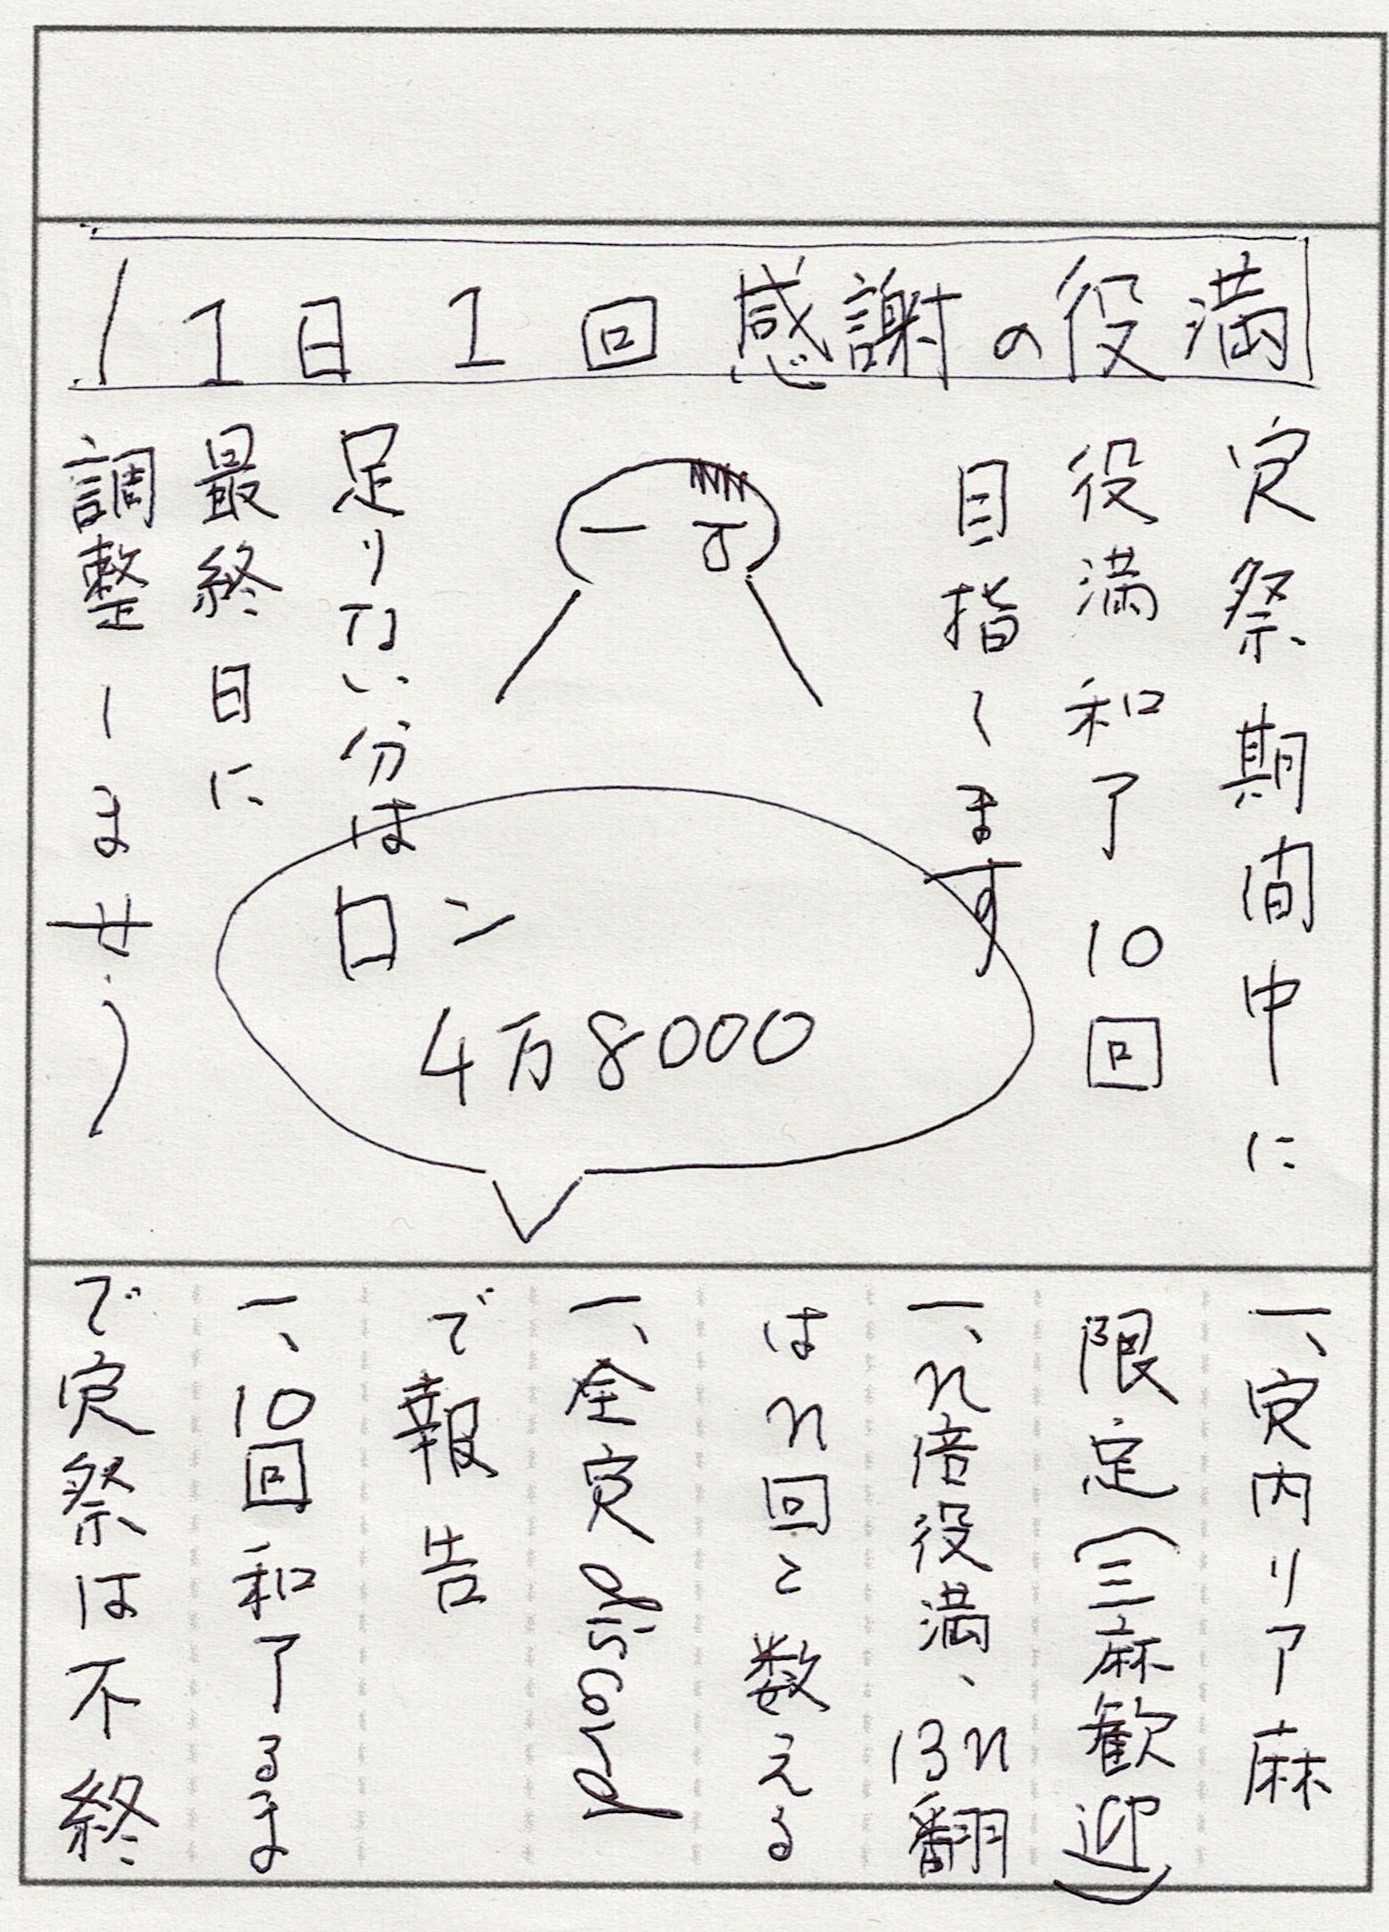 1日1回感謝の役満
実祭期間中に
役満和了10回
目指します
足りない分は
最終日に
調整しません(
ロン
4万8000
一、実内リア麻
限定(三麻歓迎)
一、n倍役満、13n翻
はn回と数える
一、全実discord
で報告
一、10回和了るま
で実祭は不終